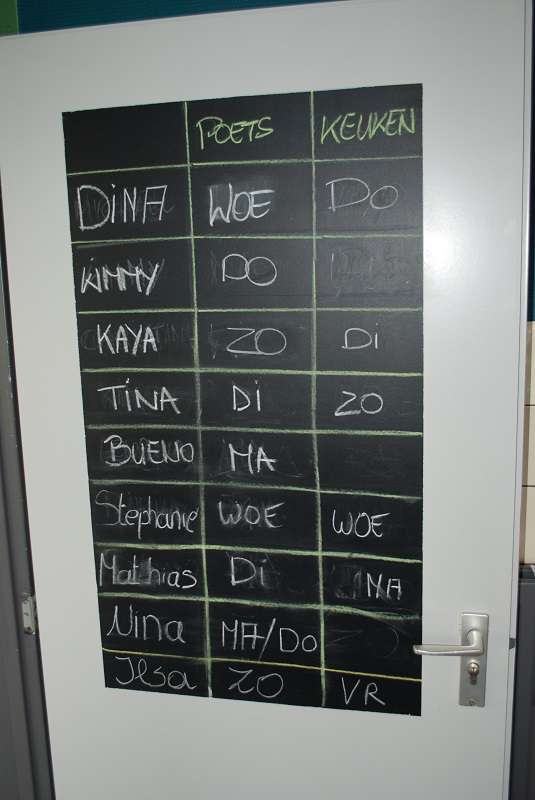 POETS KEUKEN
DiNA WOE DO
KiMMY DO
KAYA ZO Di
TiNA Di ZO
BUENO MA
Stephanie WOE WOE
Matthias Di MA
Nina MA/DO
Ilsa ZO VR